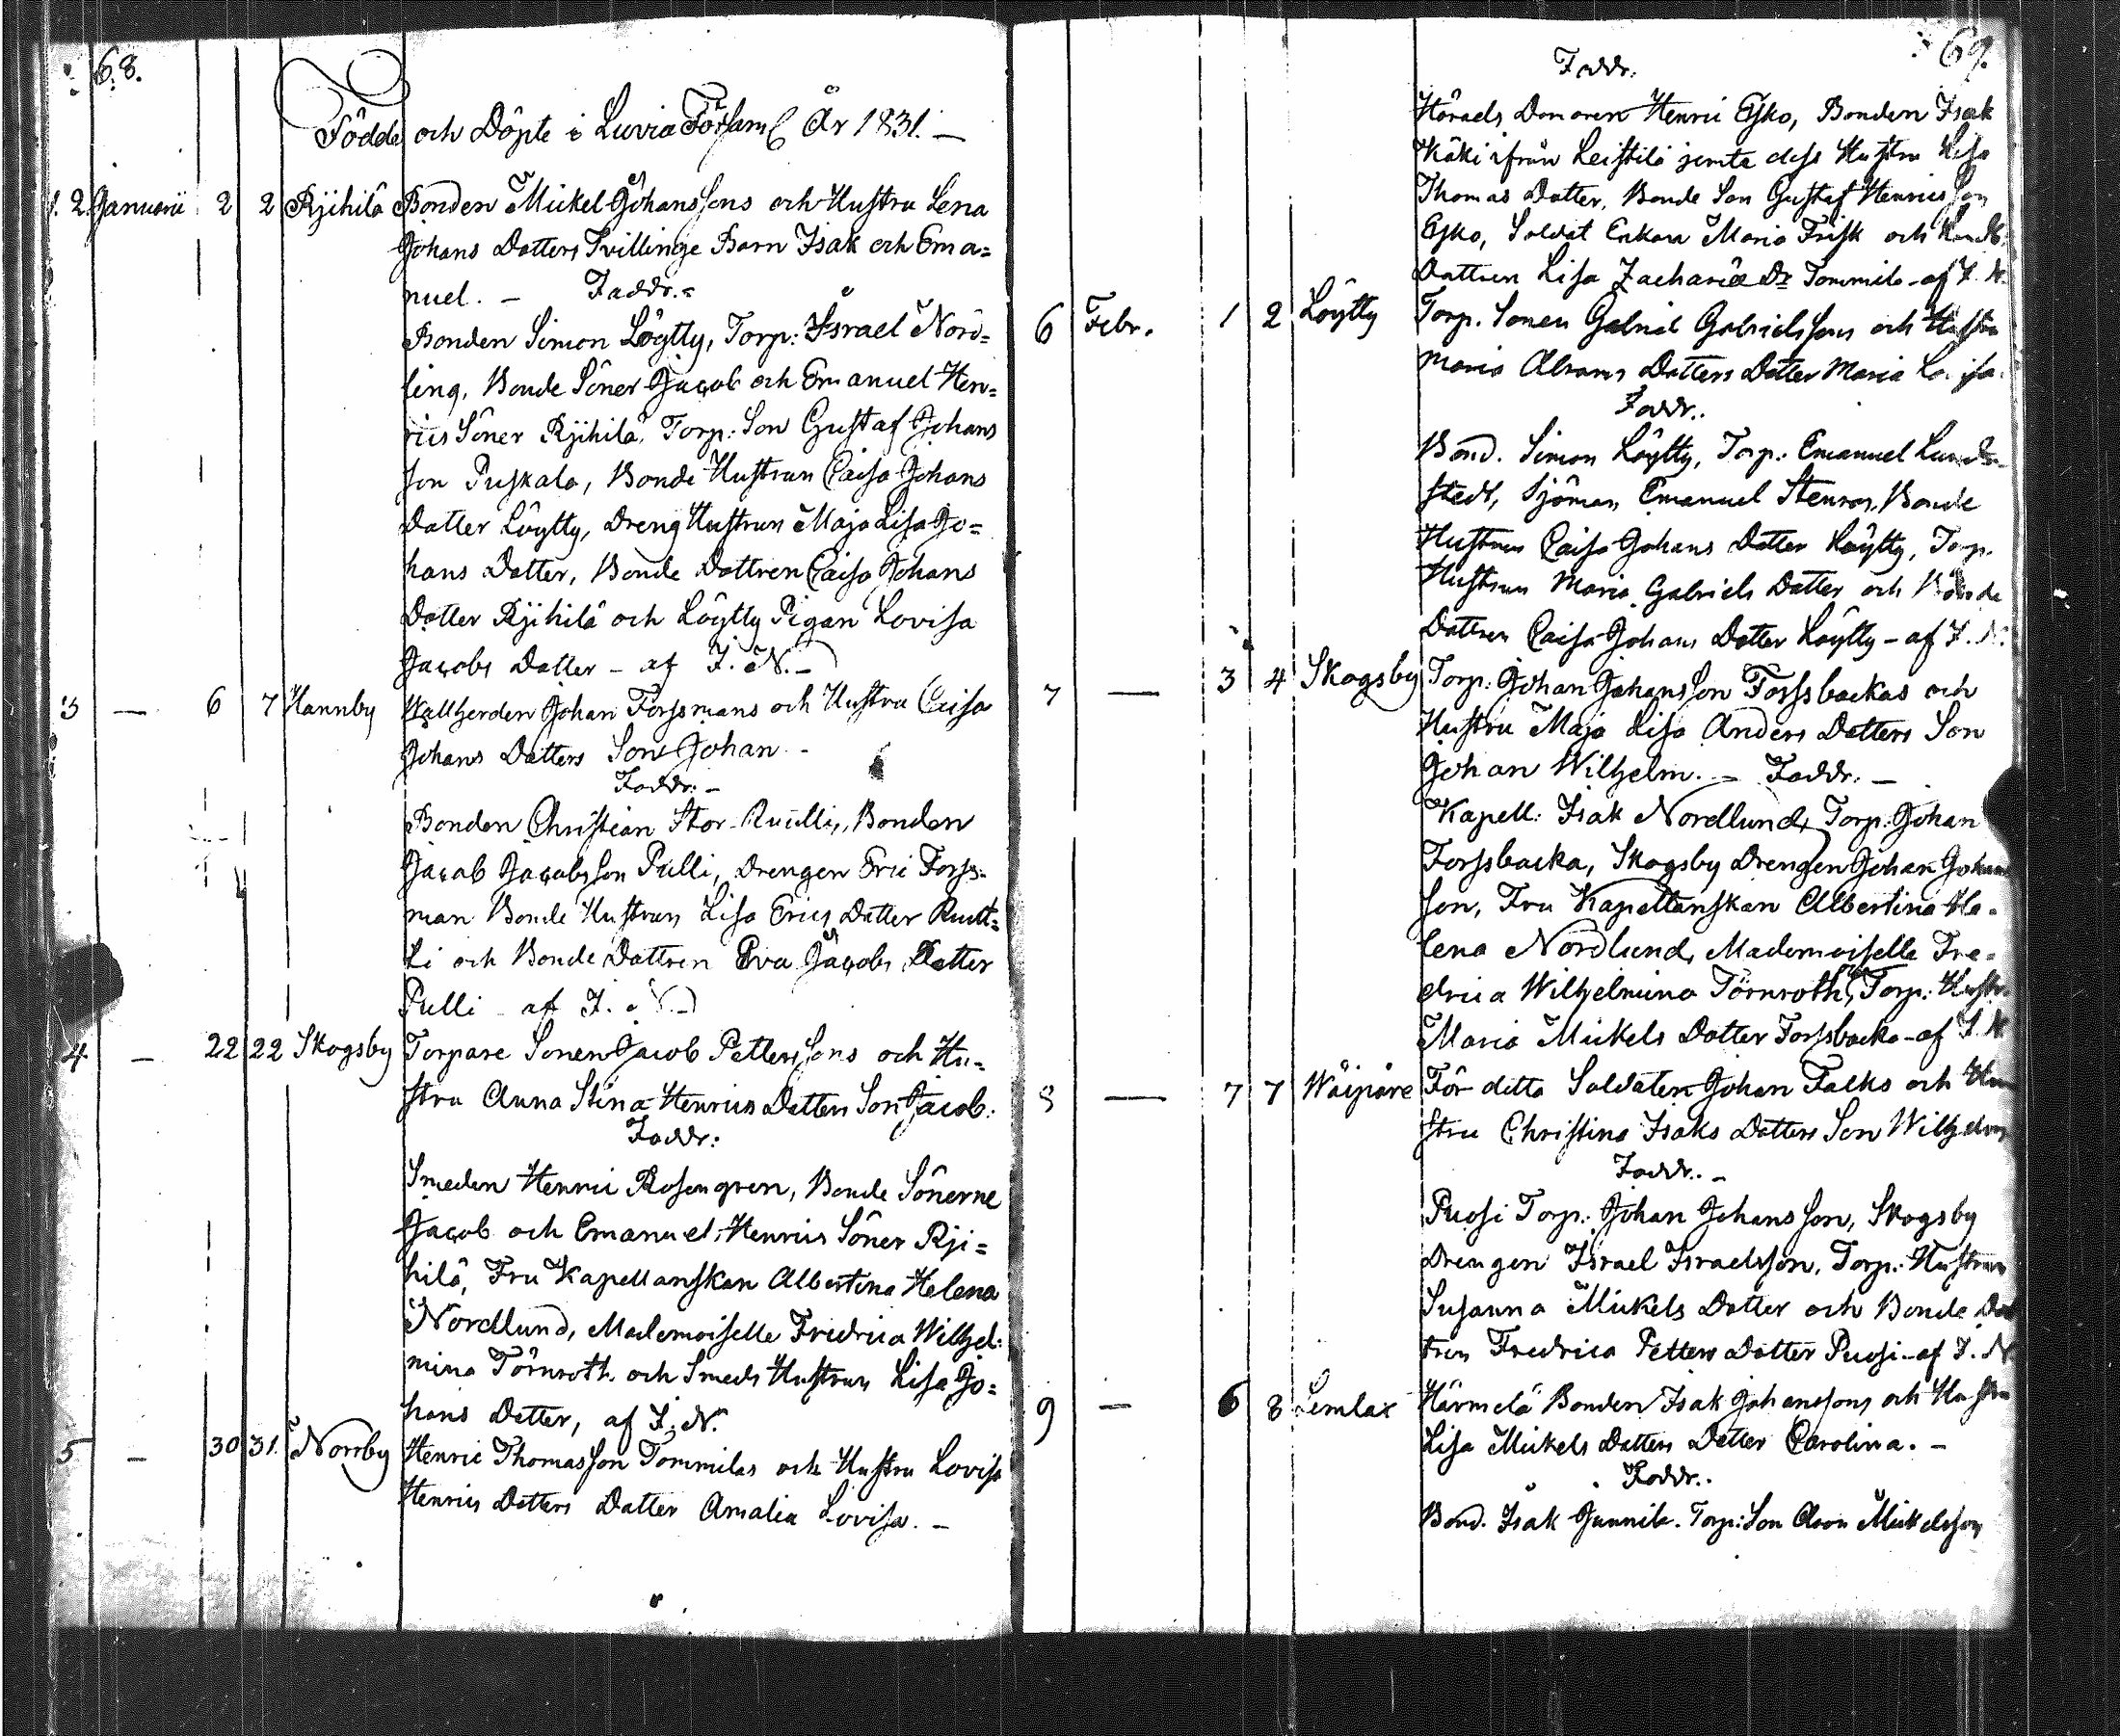 68.
Födde och Döpte i Luvia Församl År 1831. —
1. 2. Januarii 2 2 Rjihilä Bonden Mickel Johanssons och Hustru Lena
Johans Datters Tvillinge Barn Isak och Ema=
nuel. — Faddr. =
Bonden Simon Löytty, Torp: Israel Nord=
ling, Bonde Söner Jacob och Emanuel Hen=
rics Söner Rjihilä, Torp: Son Gustaf Johans
son Puskala, Bonde Hustrun Caisa Johans
Datter Löytty, Dreng Hustrun Maja Lisa Jo=
hans Datter, Bonde Dottren Caisa Johans
Datter Rjihilä och Löytty Pigan Lovisa
Jacobs Datter - af I. N. —
3 — 6 7 Hannby Wallherden Johan Forssmans och Hustru Caisa
Johans Datters Son Johan -
Faddr: -
Bonden Christian Stor-Ruutti, Bonden
Jacob Jacobsson Pulli, Drengen Eric Forss-
man Bonde Hustrun Lisa Erics Datter Ruut=
ti och Bonde Dattren Eva Jacobs Datter
Pulli - af I. N. —
4 — 22 22 Skogsby Torpare Sonen Jacob Petterssons och Hu-
stru Anna Stina Henrics Datters Son Jacob.
Faddr:
Smeden Henric Rosengren, Bonde Sönerne
Jacob och Emanuel Henrics Söner Rji=
hilä, Fru Kapellanskan Albertina Helena
Nordlund, Mademoiselle Fredrica Wilhel:
mina Törnroth och Smeds Hustrun Lisa Jo=
hans Datter, af I. N.
5 — 30 31. Norrby Henric Thomasson Tommilas och Hustru Lovisa
Henrics Datters Datter Amalia Lovisa. —
69.
Faddr:
Härads Domaren Henric Esko, Bonden Isak
Käki ifrån Leistilä jemte dess Hustru Lisa
Thomas Datter, Bonde Son Gustaf Henricsson
Esko, Soldat Enkan Maria Frisk och
Dattren Lisa Zachariæ Dr Tommila - af I. N.
6 Febr. 1 2 Löytty Torp. Sonen Gabriel Gabrielssons och Hustru
Maria Abrams Datters Datter Maria Lovisa.
Faddr..
Bond. Simon Löytty, Torp: Emanuel Lund-
stedt, Sjöman Emanuel Stenros, Bonde
Hustrun Caisa Johans Datter Löytty, Torp.
Hustrun Maria Gabriels Datter och Bonde
Dattren Caisa Johans Datter Löytty - af I. N.
7 — 3 4 Skogsby Torp: Johan Johansson Forssbackas och
Hustru Maja Lisa Anders Datters Son
Johan Wilhelm. — Faddr: —
Kapell: Isak Nordlund, Torp: Johan
Forssbacka, Skogsby Drengen Johan Johans
son, Fru Kapellanskan Albertina He-
lena Nordlund, Mademoiselle Fre-
drica Wilhelmina Törnroth, Torp: Hustr.
Maria Mickels Datter Forssbacka - af I. N.
8 — 7 7 Wäipäre För ditta Soldaten Johan Falks och Hu
stru Christina Isaks Datters Son Wilhelm
Faddr.. -
Puosi Torp: Johan Johansson, Skogsby
Drengen Israel Israelsson, Torp: Hustrun
Susanna Mickels Datter och Bonde Dat
tren Fredrica Petters Datter Puosi - af I. N
9 — 6 8 Lemlax Härmelä Bonden Isak Johanssons och Hustru
Lisa Mickels Datters Datter Carolina. —
Faddr..
Bond. Isak Gunnila. Torp: Son Aron Mickelsson